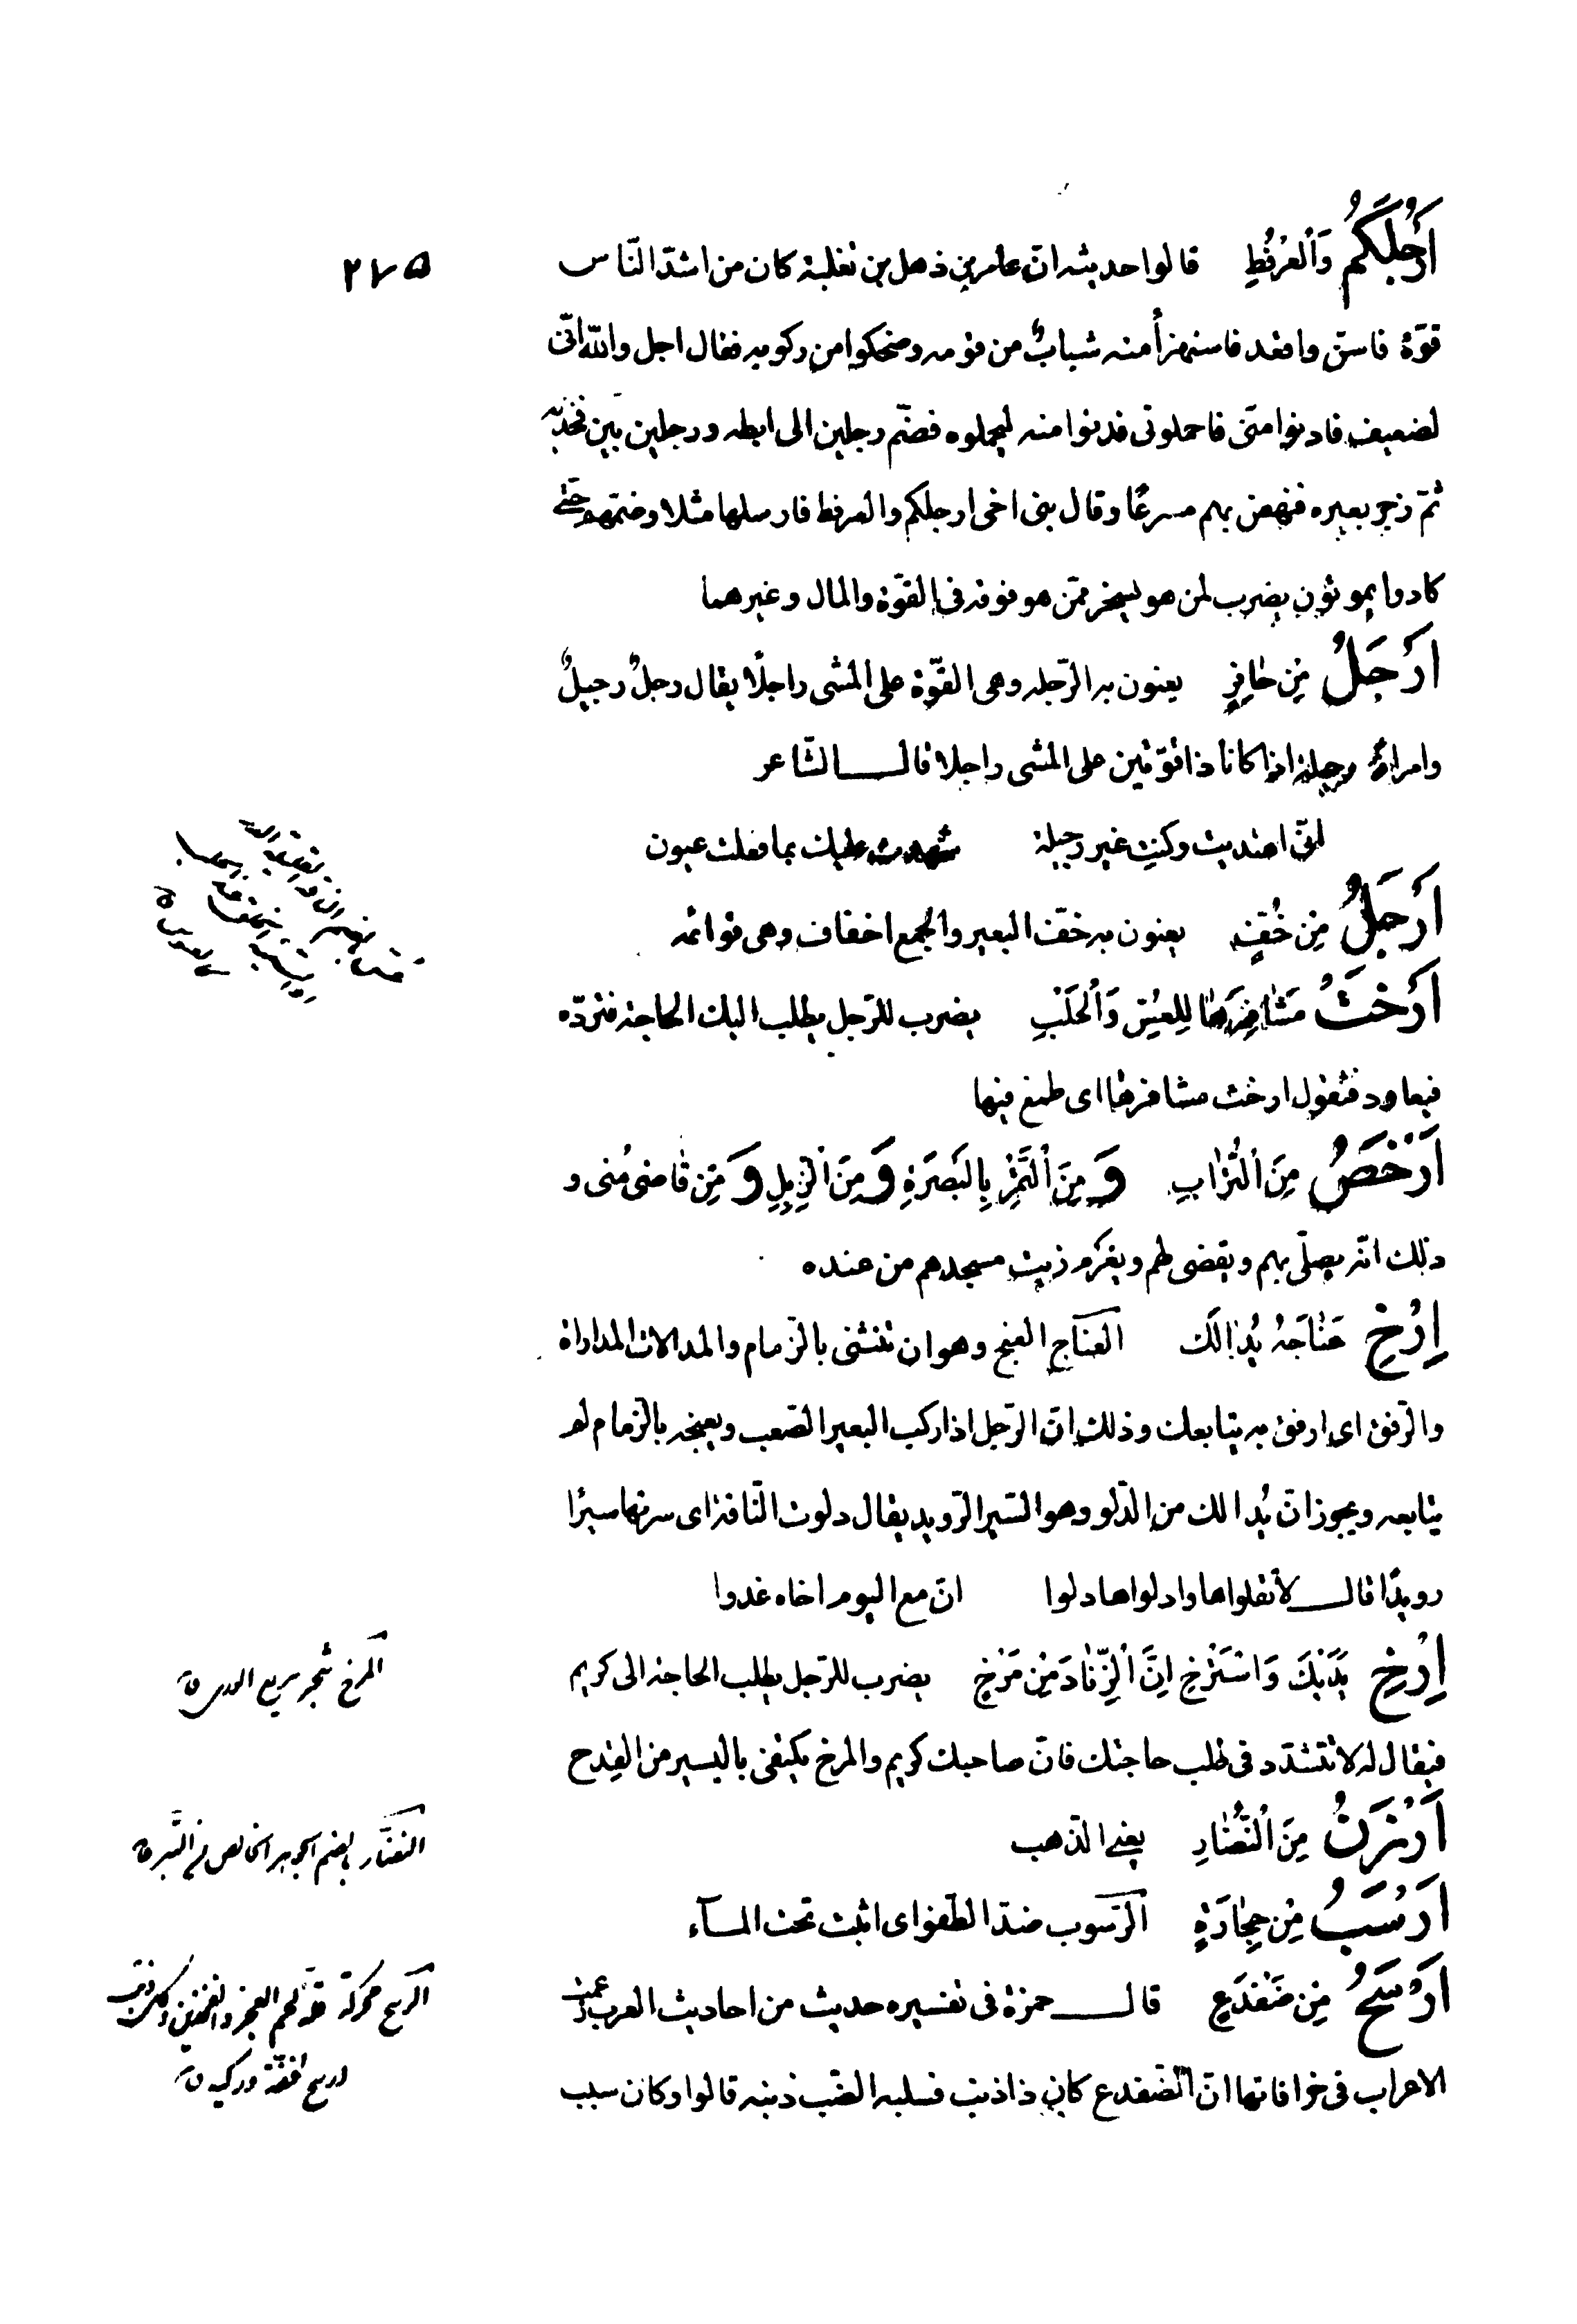 ٢٧٥
اَرْجُلَكُمْ وَالْعُرْفُطِ قالوا حديثه انّ عامر بن ذهل بن ثعلبة كان من اشدّ النّاس
قوّة فاسنّ واقعد فاستهزأ منه شبابٌ من قومه وضحكوا من ركوبه فقال اجل واللّه انّى
لضعيف فادنوا منّى فاحملونى فدنوا منه ليحملوه فضمّ رجلين الى ابطه ورجلين بين فخذيه
ثمّ زجر بعيره فنهض بهم مسرعًا وقال بنى اخى ارجلكم والعرفط فارسلها مثلا وضمّهم حتّى
كادوا يموتون يضرب لمن هو يسخر ممّن هو فوقه فى القوّة والمال وغيرهما
اَرْجَلُ مِنْ حَافِرٍ يعنون به الرّجله وهى القوّة على المشى راجلًا يقال رجلٌ رجيلٌ
وامراةٌ رجيلة اذا كانا ذا قوّتين على المشى راجلا قال الشّاعر
انّى اهتديت وكنتِ غير رجيلة شهدت عليك بما فعلت عيون
اَرْجَلُ مِنْ خُفٍّ يعنون به خفّ البعير والجمع اخفاف وهى قوائمه
اَرْخَتْ مَشَافِرَهَا لِلْعُسِّ وَالْحَلَبِ يضرب للرّجل يطلب اليك الحاجة فتردّه
فيعاود فتقول ارخت مشافرها اى طمع فيها
اَرْخَصُ مِنَ التُّرَابِ وَ مِنَ التَّمْرِ بِالبَصْرَةِ وَ مِنَ الزِّبِلِ وَ مِنْ قَاضِى مُنى و
ذلك انّه يصلّى بهم ويقضى لهم ويغرم زيت مسجدهم من عنده
اِرْخِ عَنَاجَهُ يُدَالِكَ العناج العنج وهو ان تثنى بالزّمام والمدالات المداراة
والرّفق اى ارفق به يتابعك وذلك انّ الرّجل اذا ركب البعير الصّعب وعنجه بالزّمام لم
يتابعه ويجوز انّ يُدالك من الدّلو وهو السّير الرّويد يقال دلوت النّاقة اى سرتها سيرًا
رويدًا قال لا تقلواها وادلواها دلوا انّ مع اليوم اخاه غدوا
اِرْخِ يَدَيْكَ وَاسْتَرْخِ اِنَّ الزِّنَادَ مِنْ مَرْخٍ يضرب للرّجل يطلب الحاجة الى كريم
فيقال له لا تتشدّد فى طلب حاجتك فانّ صاحبك كريم والمرخ يكتفى باليسير من القدح
المرخ شجر سريع الورى ق
اَرْزَنُ مِنَ النُّضَّارِ يعنى الذهب
النضار بالضم الجوهر الخالص من التبر ق
اَرْسَبُ مِنْ حِجَارَةٍ الرّسوب ضدّ الطّفو اى اثبت تحت المآء
اَرْسَحُ مِنْ ضَفْدَعٍ قال حمزة فى تفسيره حديث من احاديث العرب
الرسح محركة قلة لحم العجز والفخذين
الاعراب فى خرافاتها انّ الضّفدع كان ذا ذنب فسلبه الضّب ذنبه قالوا وكان سبب